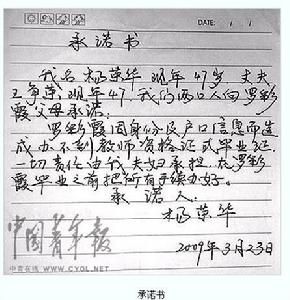 DATE: / /
承诺书
我名杨荣华 现年47岁 丈夫
王争荣 现年47. 我们两口人向罗彩
霞父母承诺:
罗彩霞因身份及户口信息而造
成办不到教师资格证或毕业证
一切责任由我夫妇承担. 在罗彩
霞毕业之前把所有手续办好。
承 诺 人:
杨荣华
2009年3月23日
中国青年报
中青在线 WWW.CYOL.NET
承诺书